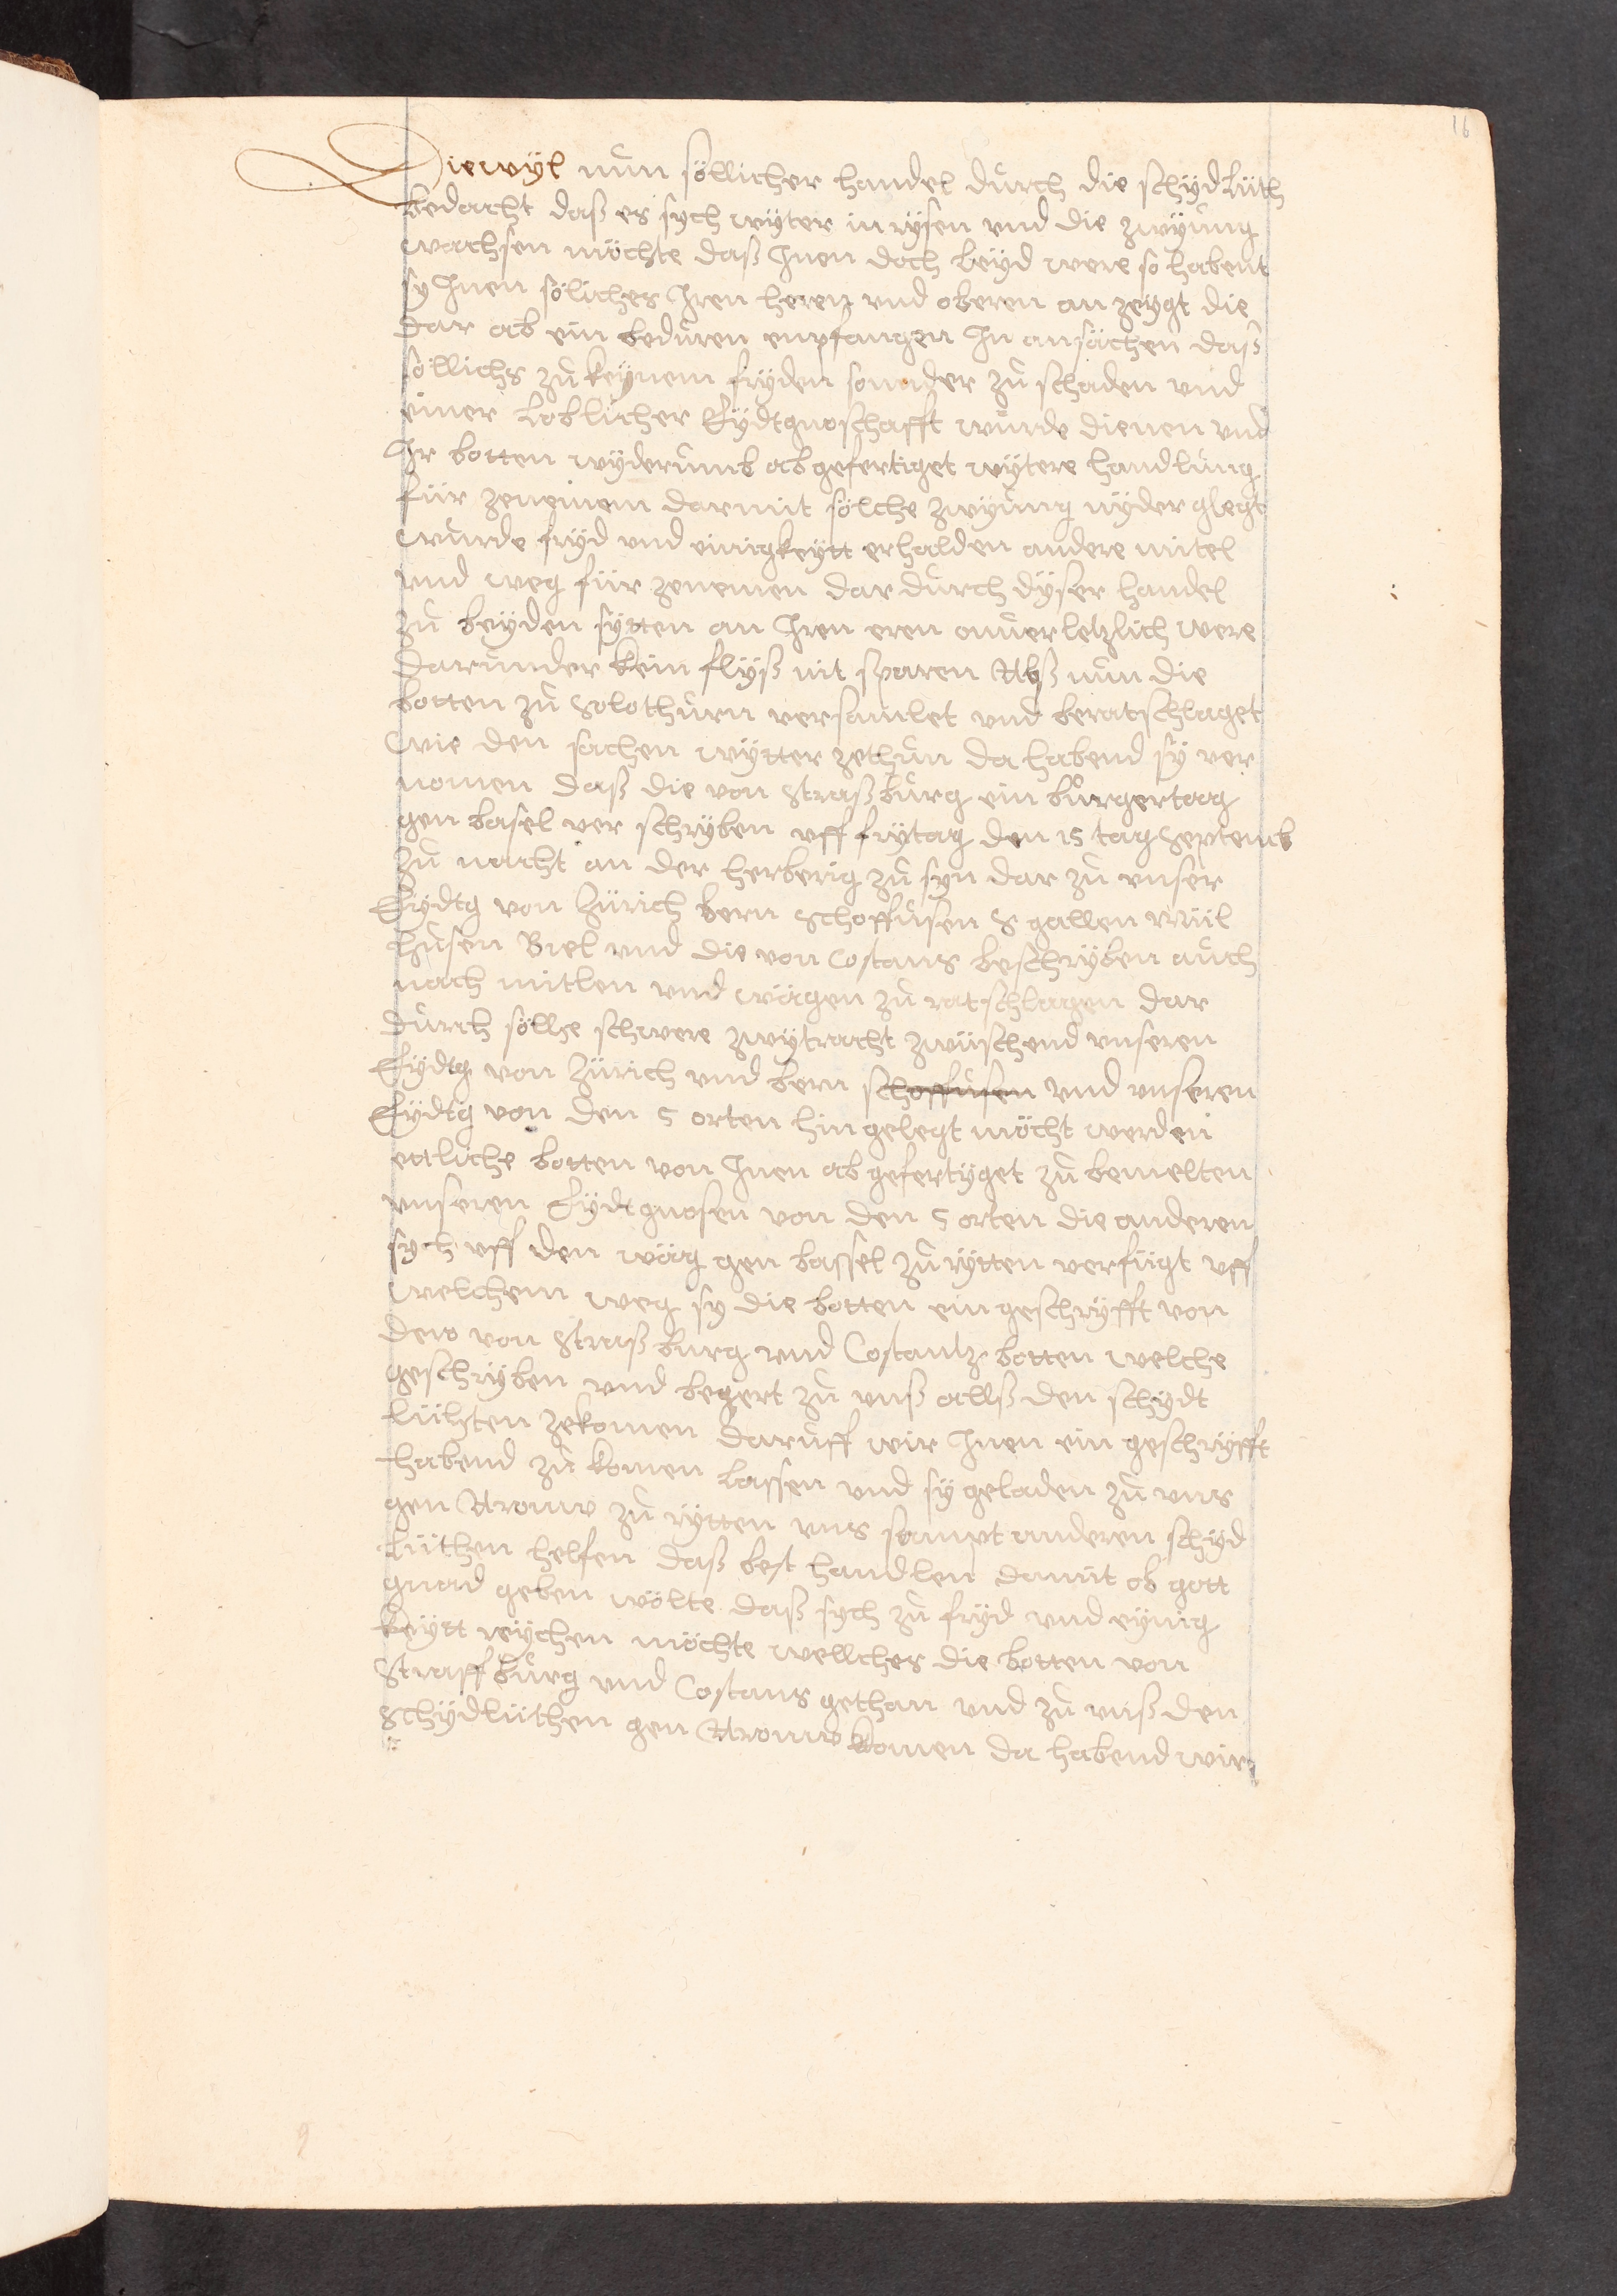 16
Diewyl nun söllicher handel durch die schydlüth
bedacht daß es sych wyter in rysen vnd die zwÿung
wachsen möchte daß Jnen doch leyd were so habent
sy Jnen söliches Jren heren vnd oberen an zeygt die
dar ab ein beduren empfangen Jn ansächen daß
söllichs zu keynem fryden sonnder zu schaden vnd
einer loblicher Eydtgnoschafft wurde dienen vnd
Jr botten wyderumb abgefertiget wytere handlung
für zenemem darmit sölche zwyung nyder glegt
wurde fryd vnd einigkeytt erhalden andere mitel
vnd weg für zenemen dar durch dyser handel
zu beyden sytten an Jren eren onuerletzlich were
darunder kein flyß nit sparen Alß nun die
botten zu Solothurn versamlet vnd beratschlaget
wie den sachen wytter zethun da habend sy ver
nomen daß die von Straßburg ein burgertag
gen basel ver schryben vff frytag den 15 tag Septemb
zu nacht an der herberig zu syn dar zu vnser
Eydtg von Zürich bern Schoffusen S gallen Mül
husen Biel vnd die von Costans beschryben auch
nach mitlen vnd wägen zu ratschlagen dar
durch söllse schwere zwytracht zwüschend vnseren
Eydtg von Zürich vnd bern schoffusen vnd vnseren
Eydtg von den 5 orten hin gelegt möcht werden
ettliche botten von Jnen ab gefertyget zu bemelten
vnseren Eydtgnosen von den 5 orten die anderen
sych vff den wäg gen bassel zu rytten verfügt vff
welchem weg sy die botten ein geschryfft von
dero von Straßburg vnd Costantz botten welche
geschryben vnd begert zu vnß allß den schydt
lüthten zekomen daruff wir Jnen ein geschryfft
habend zu komen lassen vnd sy geladen zu vns
gen Arouw zu rytten vns sampt anderen schyd
lüthen helfen daß best handlen damit ob gott
gnad geben wölte daß sych zu fryd vnd eynig
keytt reychen möchte wellches die botten von
Straffburg vnd Costans gethan vnd zu vnß den
Schydlüthen gen Arouw komen da habend wir